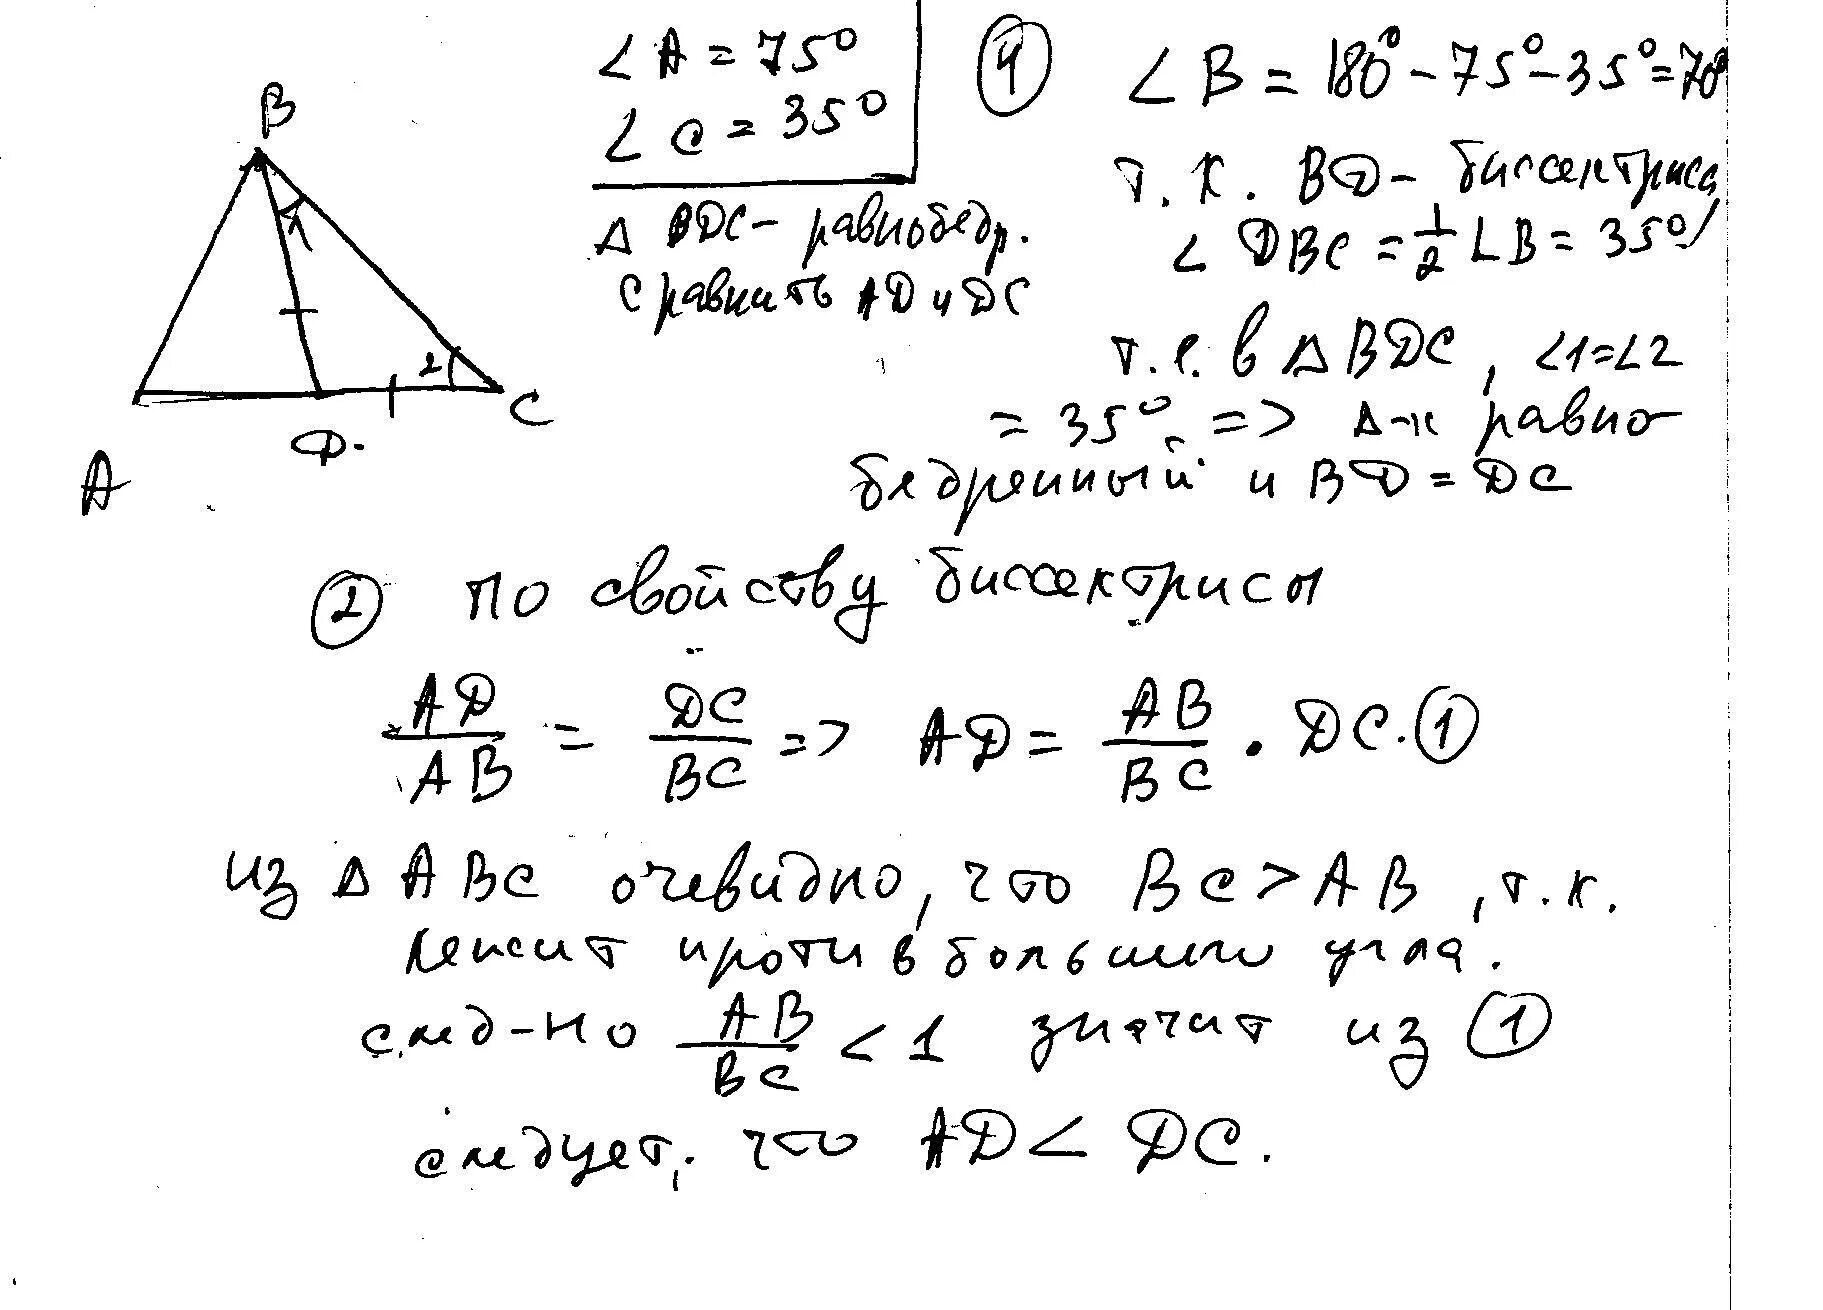 B
A
D.
C
1
2
∠A = 75°
∠C = 35°
Δ BDC – равнобедр.
сравнить AD и DC
① ∠B = 180° – 75° – 35° = 70°
т.к. BD – биссектриса
∠DBC = 1/2 ∠B = 35°
т.е. в Δ BDC, ∠1 = ∠2
= 35° => Δ-к равно-
бедренный и BD = DC
② по свойству биссектрисы
AD/AB = DC/BC => AD = AB/BC · DC. ①
из Δ ABC очевидно, что BC > AB, т.к.
лежит против большего угла.
след-но AB/BC < 1 значит из ①
следует, что AD < DC.